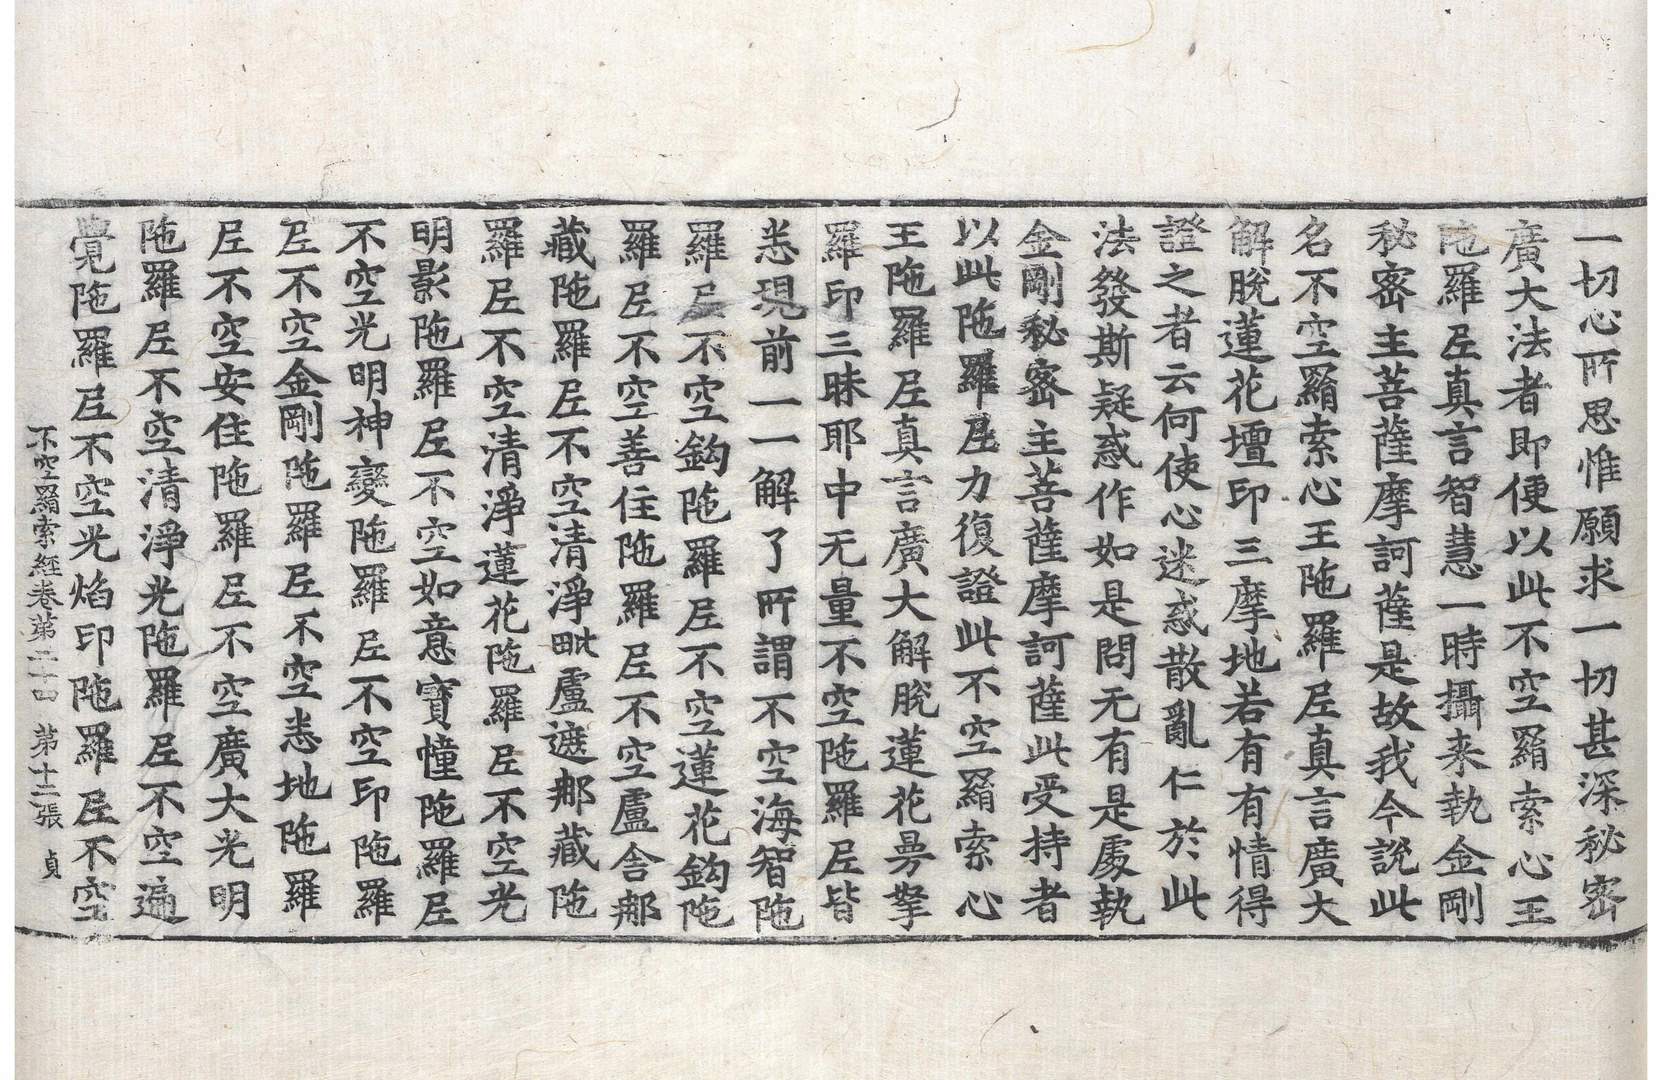 一切心所思惟願求一切甚深秘密
廣大法者即便以此不空羂索心王
陁羅𡰱真言智慧一時攝来執金剛
秘密主菩薩摩訶薩是故我今說此
名不空羂索心王陁羅𡰱真言廣大
解脫蓮花壇印三摩地若有有情得
證之者云何使心迷惑散亂仁於此
法發斯疑惑作如是問无有是處執
金剛秘密主菩薩摩訶薩此受持者
以此陁羅𡰱力復證此不空羂索心
王陁羅𡰱真言廣大解脫蓮花曼拏
羅印三昧耶中无量不空陁羅𡰱皆
悉現前一一解了所謂不空海智陁
羅𡰱不空鈎陁羅𡰱不空蓮花鈎陁
羅𡰱不空善住陁羅𡰱不空盧舍那
藏陁羅𡰱不空清淨毗盧遮那藏陁
羅𡰱不空清淨蓮花陁羅𡰱不空光
明影陁羅𡰱不空如意寶幢陁羅𡰱
不空光明神變陁羅𡰱不空印陁羅
𡰱不空金剛陁羅𡰱不空悉地陁羅
𡰱不空安住陁羅𡰱不空廣大光明
陁羅𡰱不空清淨光陁羅𡰱不空遍
覺陁羅𡰱不空光焰印陁羅𡰱不空
不空羂索經卷第二十四　第十二張　貞